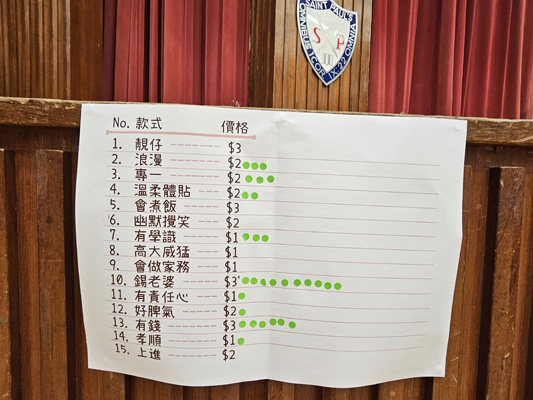 SAINT PAUL'S
OMNIBUS OMNIA
I COR IX:22
S P
No. 款式 價格
1. 靚仔 $3
2. 浪漫 $2
3. 專一 $2
4. 溫柔體貼 $2
5. 會煮飯 $3
6. 幽默攪笑 $2
7. 有學識 $1
8. 高大威猛 $1
9. 會做家務 $1
10. 錫老婆 $3
11. 有責任心 $1
12. 好脾氣 $2
13. 有錢 $3
14. 孝順 $1
15. 上進 $2